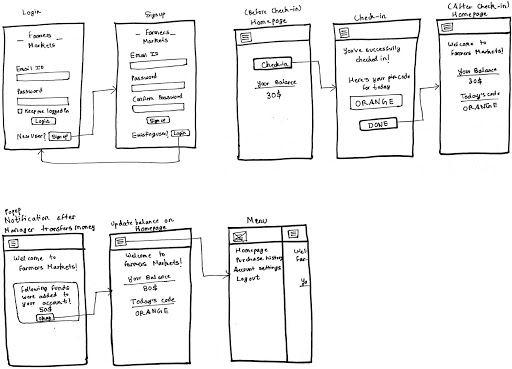 Login
Farmers
Markets
Email ID
Password
Keep me logged in
Login
New User? Signup
Signup
Farmers
Markets
Email ID
Password
Confirm Password
Sign up
Existing user? Login
(Before Check-in)
Homepage
Check-in
Your Balance
30$
Check-in
You've successfully
checked in!
Here's your pin code
for today
ORANGE
DONE
(After Check-in)
Homepage
Welcome to
Farmers Markets!
Your Balance
30$
Today's code
ORANGE
Popup
Notification after
Manager transfers money
Welcome to
Farmers Markets!
Following funds
were added to
your account!
50$
Okay
Update balance on
Homepage
Welcome to
Farmers Markets!
Your Balance
80$
Today's code
ORANGE
Menu
Homepage
Purchase history
Account settings
Logout
Wel
Far
Yo